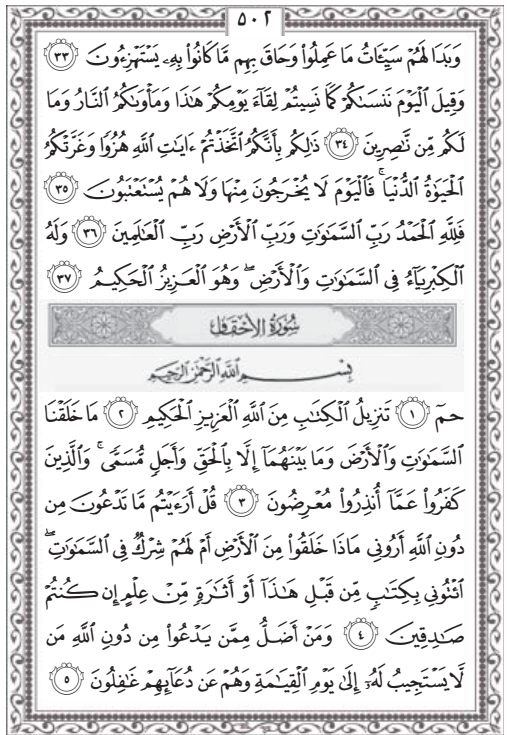 ٥٠٢
وَبَدَا لَهُمْ سَيِّـَٔاتُ مَا عَمِلُوا۟ وَحَاقَ بِهِم مَّا كَانُوا۟ بِهِۦ يَسْتَهْزِءُونَ ٣٣
وَقِيلَ ٱلْيَوْمَ نَنسَىٰكُمْ كَمَا نَسِيتُمْ لِقَآءَ يَوْمِكُمْ هَـٰذَا وَمَأْوَىٰكُمُ ٱلنَّارُ وَمَا
لَكُم مِّن نَّـٰصِرِينَ ٣٤ ذَٰلِكُم بِأَنَّكُمُ ٱتَّخَذْتُمْ ءَايَـٰتِ ٱللَّهِ هُزُوًا وَغَرَّتْكُمُ
ٱلْحَيَوٰةُ ٱلدُّنْيَا ۚ فَٱلْيَوْمَ لَا يُخْرَجُونَ مِنْهَا وَلَا هُمْ يُسْتَعْتَبُونَ ٣٥
فَلِلَّهِ ٱلْحَمْدُ رَبِّ ٱلسَّمَـٰوَٰتِ وَرَبِّ ٱلْأَرْضِ رَبِّ ٱلْعَـٰلَمِينَ ٣٦ وَلَهُ
ٱلْكِبْرِيَآءُ فِى ٱلسَّمَـٰوَٰتِ وَٱلْأَرْضِ ۖ وَهُوَ ٱلْعَزِيزُ ٱلْحَكِيمُ ٣٧
سُورَةُ الأَحْقَافِ
بِسْمِ ٱللَّهِ ٱلرَّحْمَـٰنِ ٱلرَّحِيمِ
حمٓ ١ تَنزِيلُ ٱلْكِتَـٰبِ مِنَ ٱللَّهِ ٱلْعَزِيزِ ٱلْحَكِيمِ ٢ مَا خَلَقْنَا
ٱلسَّمَـٰوَٰتِ وَٱلْأَرْضَ وَمَا بَيْنَهُمَآ إِلَّا بِٱلْحَقِّ وَأَجَلٍ مُّسَمًّى ۚ وَٱلَّذِينَ
كَفَرُوا۟ عَمَّآ أُنذِرُوا۟ مُعْرِضُونَ ٣ قُلْ أَرَءَيْتُم مَّا تَدْعُونَ مِن
دُونِ ٱللَّهِ أَرُونِى مَاذَا خَلَقُوا۟ مِنَ ٱلْأَرْضِ أَمْ لَهُمْ شِرْكٌ فِى ٱلسَّمَـٰوَٰتِ ۖ
ٱئْتُونِى بِكِتَـٰبٍ مِّن قَبْلِ هَـٰذَآ أَوْ أَثَـٰرَةٍ مِّنْ عِلْمٍ إِن كُنتُمْ
صَـٰدِقِينَ ٤ وَمَنْ أَضَلُّ مِمَّن يَدْعُوا۟ مِن دُونِ ٱللَّهِ مَن
لَّا يَسْتَجِيبُ لَهُۥٓ إِلَىٰ يَوْمِ ٱلْقِيَـٰمَةِ وَهُمْ عَن دُعَآئِهِمْ غَـٰفِلُونَ ٥